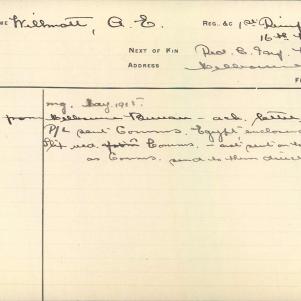 ME Willmott, A. E. REG. &C 1st Rein
16th
NEXT OF KIN
ADDRESS Melbourne
F
May, 1915.
from Melbourne Bureau - ack. letter
P/C sent Comms. Egypt, enclosed
Slip red. from Comms. - sent on to
as Comms. send to them direct